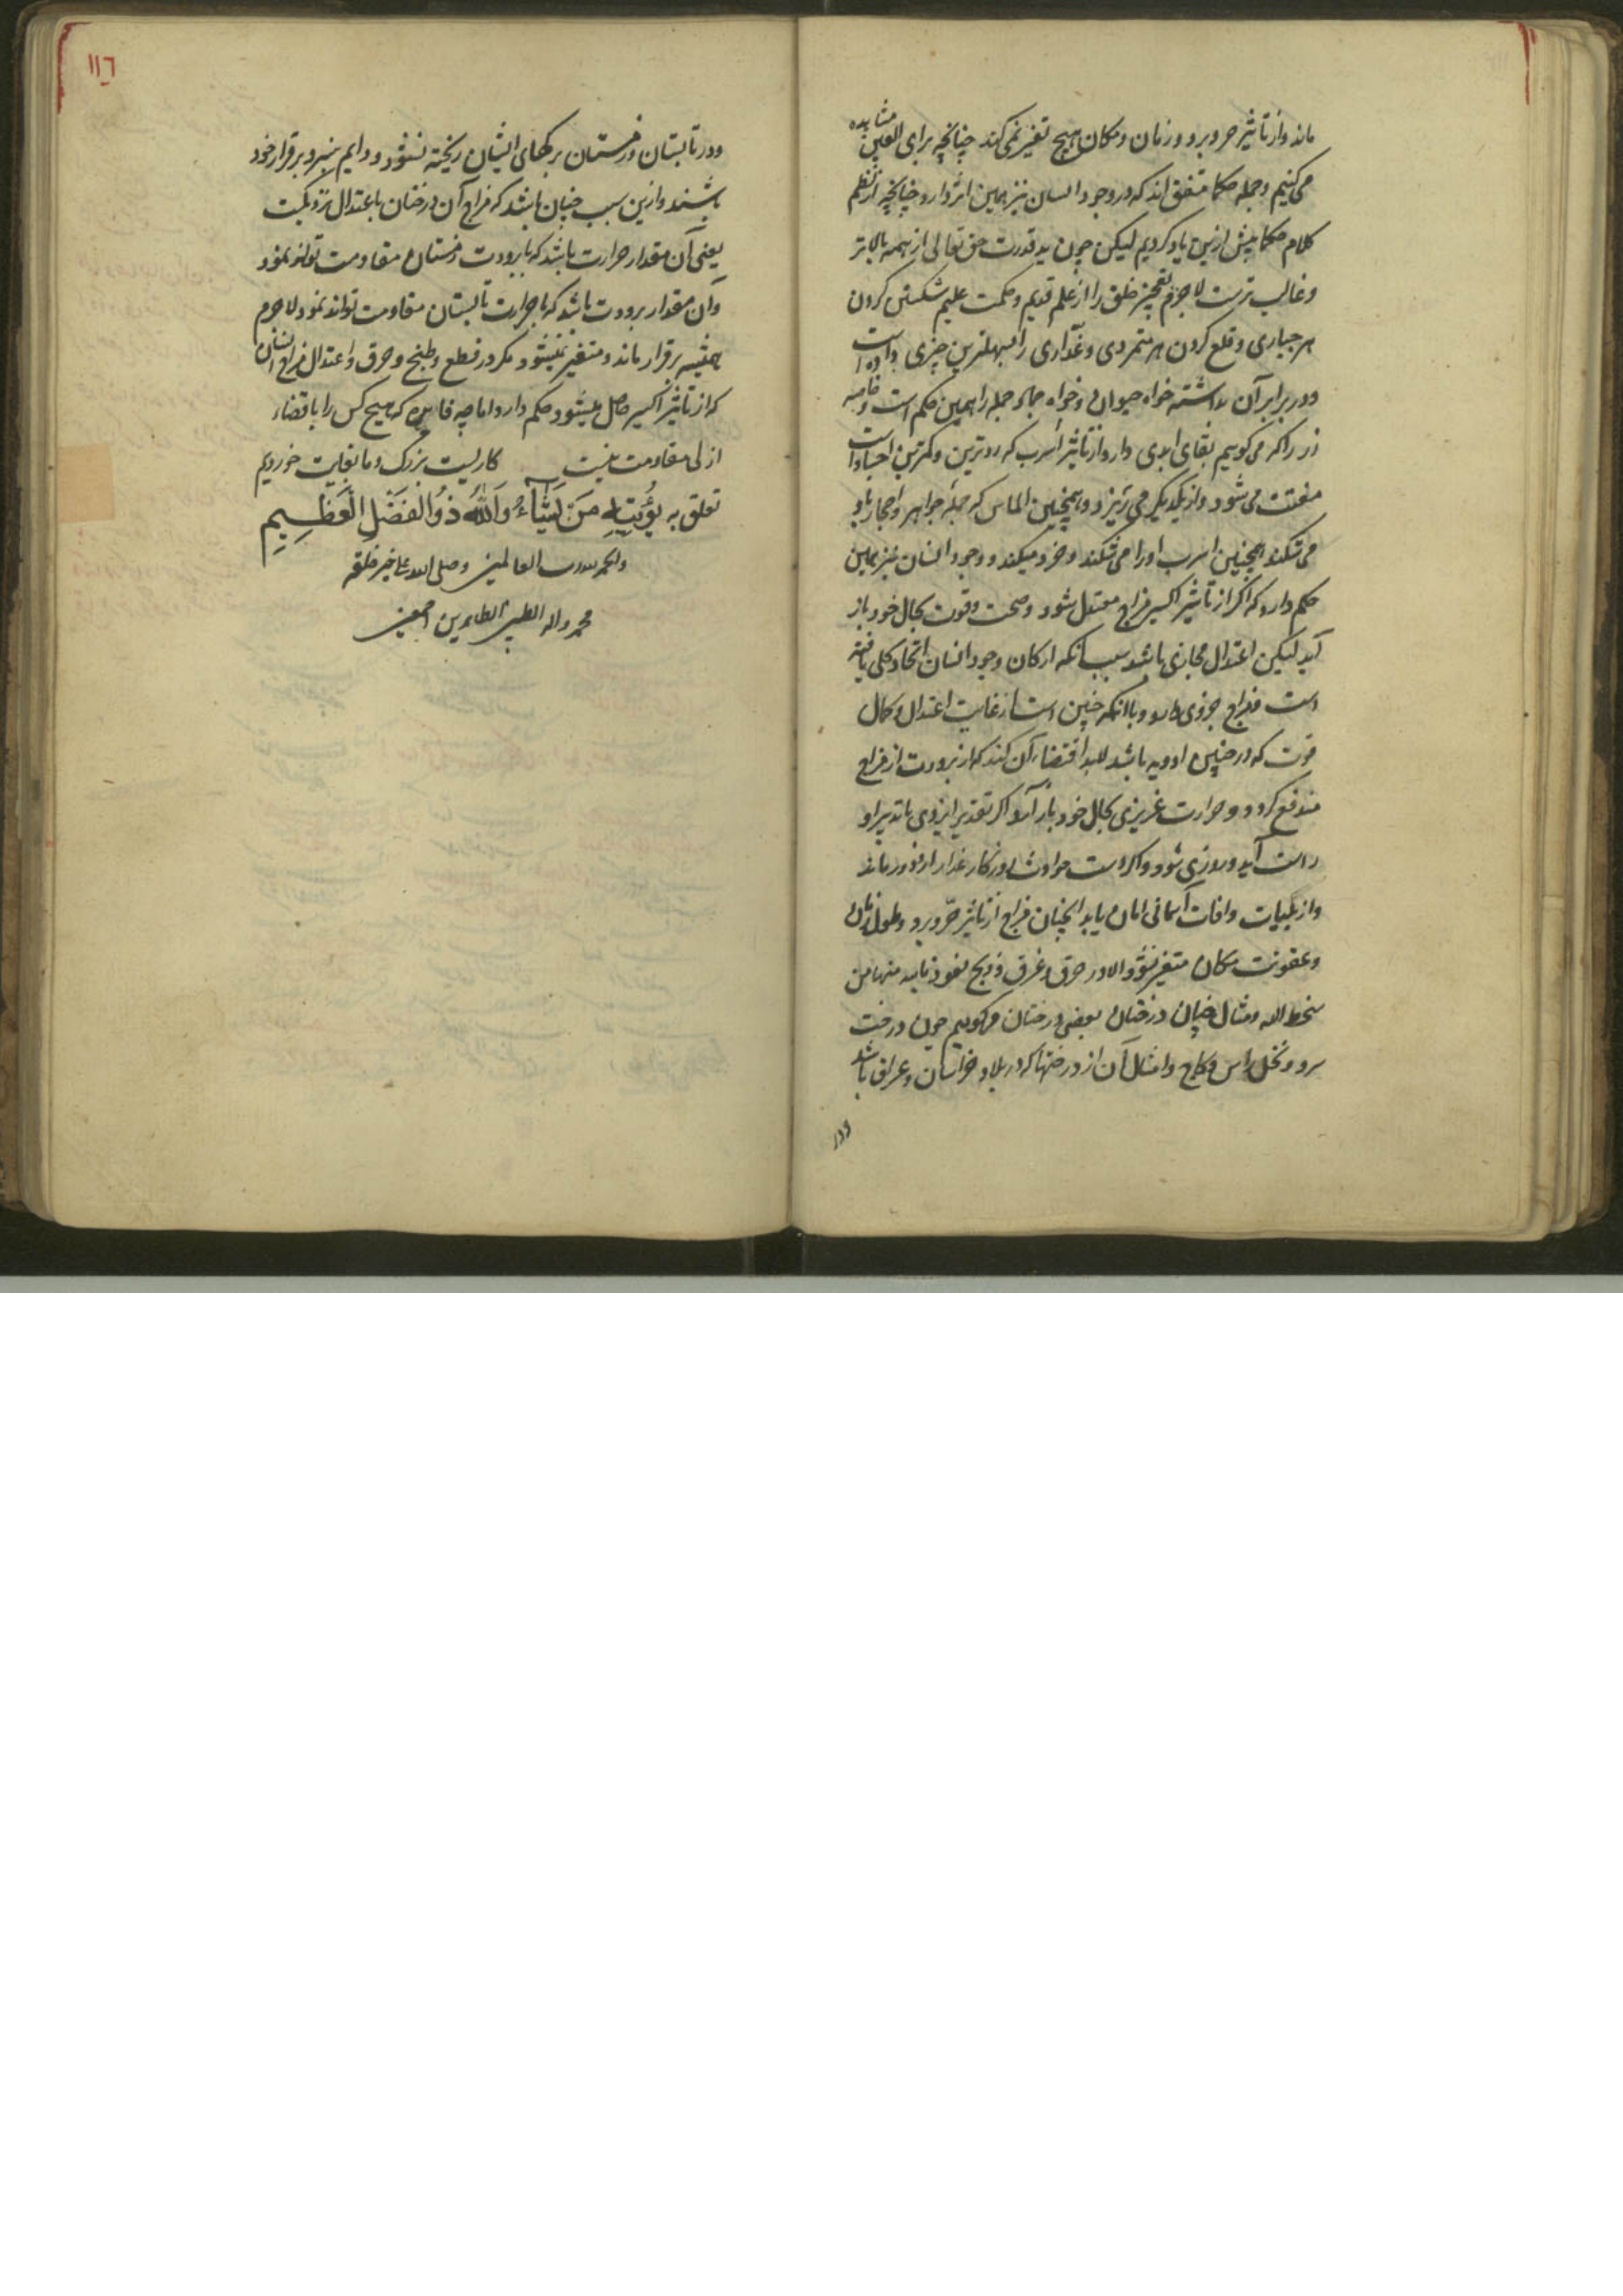 ماند و از تاثیر حر و برد و زمان و مکان هیچ تغیر نمی‌کند چنانچه برای العین مشاهده
می‌کنیم و جمله حکما متفق‌اند که در وجود انسان نیز همین اثر دارد چنانچه از نظم
کلام حکما پیش ازین یاد کردیم لیکن چون ید قدرت حق تعالی از همه بالاتر
و غالب‌ترست لاجرم تعجیز خلق را از علم قدیم و حکمت علیم شکستن کردن
هر جباری و قلع کردن هر متمردی و غداری را بسهلترین چیزی داده است
و در برابر آن داشته خواه حیوان و خواه جماد جمله را همین حکم است و خاصه
زر را که می‌کوییم بقای ابدی دارد از تاثیر اسرب که ردترین و کمترین اجساد است
مفتت می‌شود و از یکدیکر می‌ریزد و همچنین الماس که جمله جواهر و احجار باو
می‌شکند همچنین اسرب او را می‌شکند و خرد میکند و وجود انسان نیز همین
حکم دارد که اکر از تاثیر اکسیر مزاج معتدل شود و صحت و قوت بحال خود باز
آید لیکن اعتدال مجازی باشد بسبب آنکه ارکان وجود انسان اتحاد کلی یافته
است مزاج جزوی دارد و با آنکه چنین است از غایت اعتدال و کمال
قوت که در چنین ادویه باشد لابد اقتضاء آن کند که از برودت از مزاج
مندفع کردد و حرارت غریزی بحال خود باز آید اکر تقدیر ایزدی با تدبیر او
راست آید و روزی شود و اکر دست حوادث روزکار غدار ازو دور ماند
و از بلیات و آفات آسمانی امان یابد آنچنان مزاج از تاثیر حر و برد و طول زمان
و عفونت مکان متغیر نشود الا در حرق و غرق و ذبح نعوذ بالله منها من
سخط الله و مثال چنان درختان بعضی درختان می‌کوییم چون درخت
سرو و نخل و آس و کاج و امثال آن از درختها که در بلاد خراسان و عراق باشد
و در
١١٦
و در تابستان و زمستان برکهای ایشان ریخته نشود و دایم سبز و بر قرار خود
باشند و ازین سبب چنان باشد که مزاج آن درختان باعتدال نزدیکست
یعنی آن مقدار حرارت باشد که با برودت زمستان مقاومت تواند نمود
و آن مقدار برودت باشد که با حرارت تابستان مقاومت تواند نمود لاجرم
همیشه بر قرار ماند و متغیر نمیشود مکر در قطع و طبخ و حرق و اعتدال مزاج انسان
که از تاثیر اکسیر حاصل میشود حکم دارد اما چه فایده که هیچ کس را با قضاء
ازلی مقاومت نیست کاریست بزرک و ما بغایت خوردیم
تعلق به یُؤْتِیهِ مَنْ یَشَاءُ وَاللهُ ذُو الْفَضْلِ الْعَظِیمِ
والحمد لله رب العالمین و صلی الله علی خیر خلقه
محمد و آله الطیبین الطاهرین اجمعین